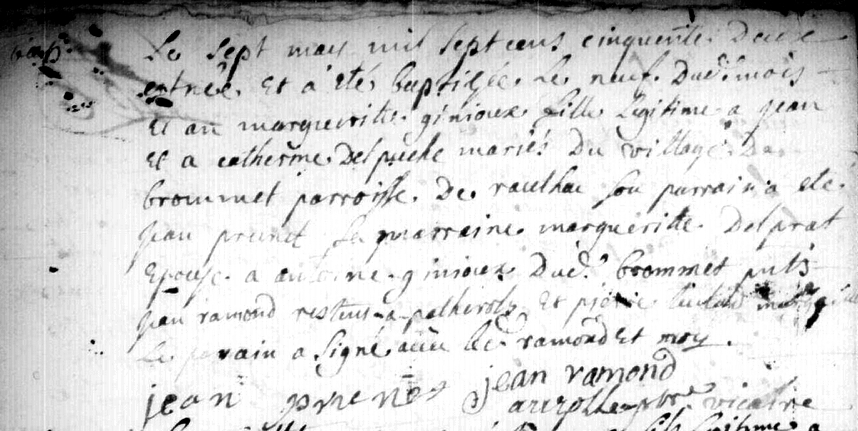 Le sept may mil sept cens cinquente Deux
et née et a été baptisée le neuf Dud. mois
et an margueritte ginioux fille legitime a jean
et a catherine Delpuche mariés Du village De
brommet parroisse De raulhac son parrain a ete
jean prunet sa marraine margueritte Delprat
Epouse a antoine ginioux Dud. brommet pnts
jean ramond restent a et
Le parain a signé avec led. ramond et moy.
jean prunet jean ramond
pbre vicaire
legitime a